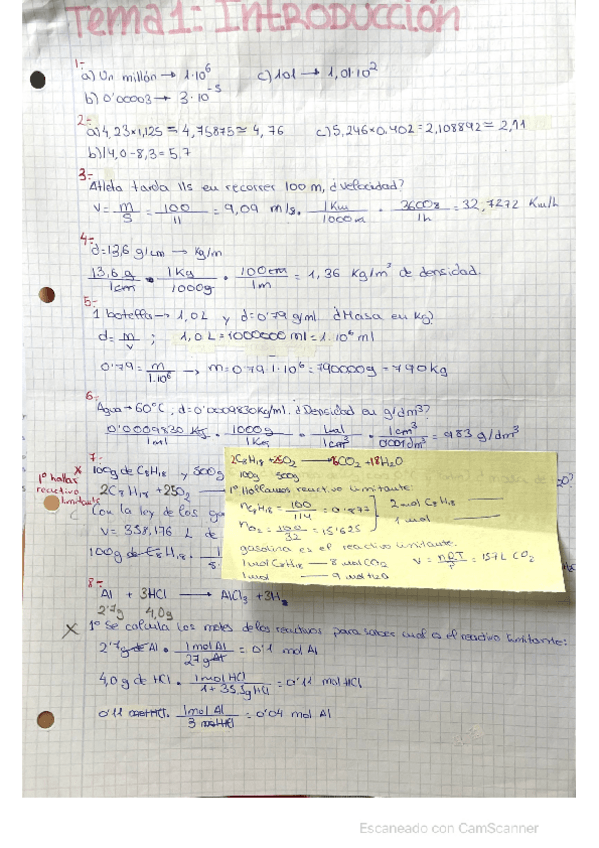 Tema 1: INTRODUCCIÓN
1-
a) Un millón → 1·10⁶ c) 101 → 1,01·10²
b) 0'00003 → 3·10⁻⁵
2-
a) 4,23×1,125 = 4,75875 ≈ 4,76 c) 5,246×0,402 = 2,108892 ≈ 2,11
b) 14,0-8,3 = 5,7
3-
Atleta tarda 11s en recorrer 100 m, ¿velocidad?
v = m/s = 100/11 = 9,09 m/s · 1Km/1000m · 3600s/1h = 32,7272 Km/h
4-
d=13,6 g/cm → Kg/m
13,6 g/1cm · 1Kg/1000g · 100cm/1m = 1,36 Kg/m³ de densidad.
5-
1 botella → 1,0L y d=0'79 g/ml. ¿Masa en Kg?
d = m/v ; 1,0L = 1000000 ml = 1·10⁶ ml
0'79 = m/1·10⁶ → m = 0'79·1·10⁶ = 790000g = 790kg
6-
Agua → 60°C, d=0'0009830Kg/ml. ¿Densidad en g/dm³?
0'0009830 Kg/1ml · 1000g/1Kg · 1ml/1cm³ · 1cm³/0'001dm³ = 983 g/dm³
7-
x 100g de C₈H₁₈ y 500g
1º hallar reactivo limitante
2C₈H₁₈ + 25O₂ →
Con la ley de los
V = 358,176 L de
100g de C₈H₁₈ ·
2C₈H₁₈ + 25O₂ → 16CO₂ + 18H₂O
100g 500g
1º Hallamos reactivo limitante:
nC₈H₁₈ = 100/114 = 0'877 2 mol C₈H₁₈
nO₂ = 500/32 = 15'625 1 mol
gasolina es el reactivo limitante.
1mol C₈H₁₈ — 8 mol CO₂ V = nRT/P = 157L CO₂
1mol — 9 mol H₂O
8-
Al + 3HCl → AlCl₃ + 3H₂
2'7g 4,0g
X 1º Se calcula los moles de los reactivos para saber cual es el reactivo limitante:
2'7g de Al · 1mol Al/27g Al = 0'1 mol Al
4,0g de HCl · 1mol HCl/1+35,5g HCl = 0'11 mol HCl
0'11 mol HCl · 1mol Al/3 mol HCl = 0'04 mol Al
Escaneado con CamScanner